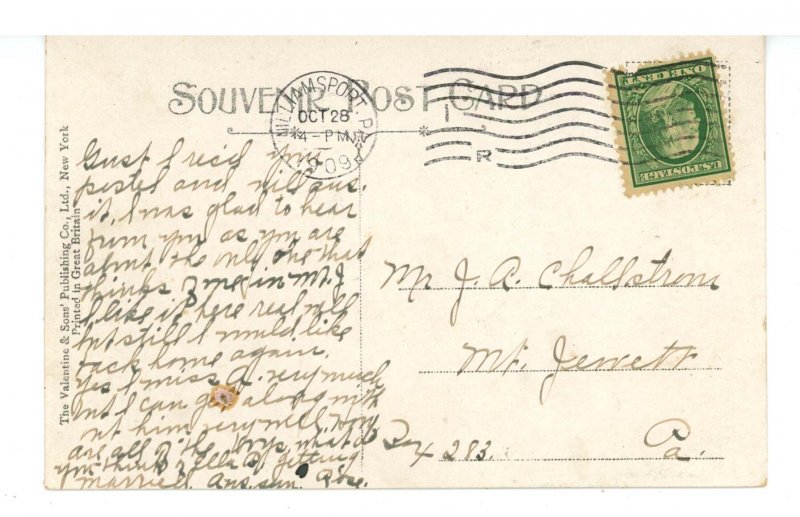 SOUVENIR POST CARD
WILLIAMSPORT, PA.
OCT 28
4-PM
1909
R
ONE CENT
U.S. POSTAGE
The Valentine & Sons' Publishing Co., Ltd., New York
Printed in Great Britain
Just I rec'd your
postel and will ans.
it, I was glad to hear
from you as you are
about the only one that
thinks of me in Mt. J
I like it here real well
but still I would like
back home again.
Yes I miss d. very much
but I can get along with
out him very well. How
are all of the boys what do
you think of Ella B. getting
married. Ans. sun.
Mr J. A. Challstrom
Mt. Jewett
283.
Pa.